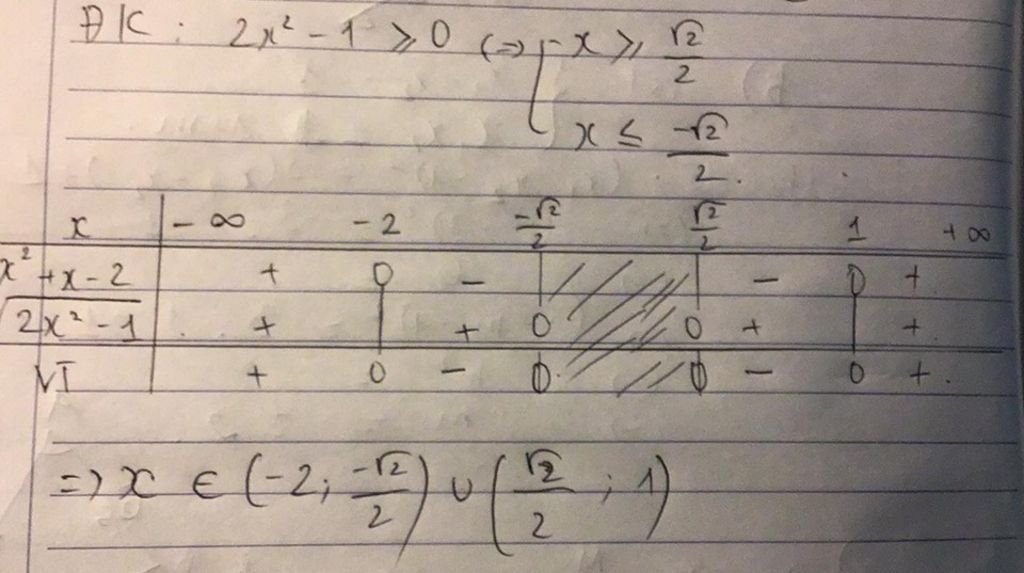 ĐK: 2x² - 1 ≥ 0 (=> [ x ≥ √2/2
x ≤ -√2/2.
x | -∞ -2 -√2/2 √2/2 1 +∞
x² + x - 2 | + 0 - | | - 0 +
√(2x² - 1) | + | + 0 0 + | +
VT | + 0 - 0 0 - 0 +.
=> x ∈ (-2; -√2/2) ∪ (√2/2; 1)